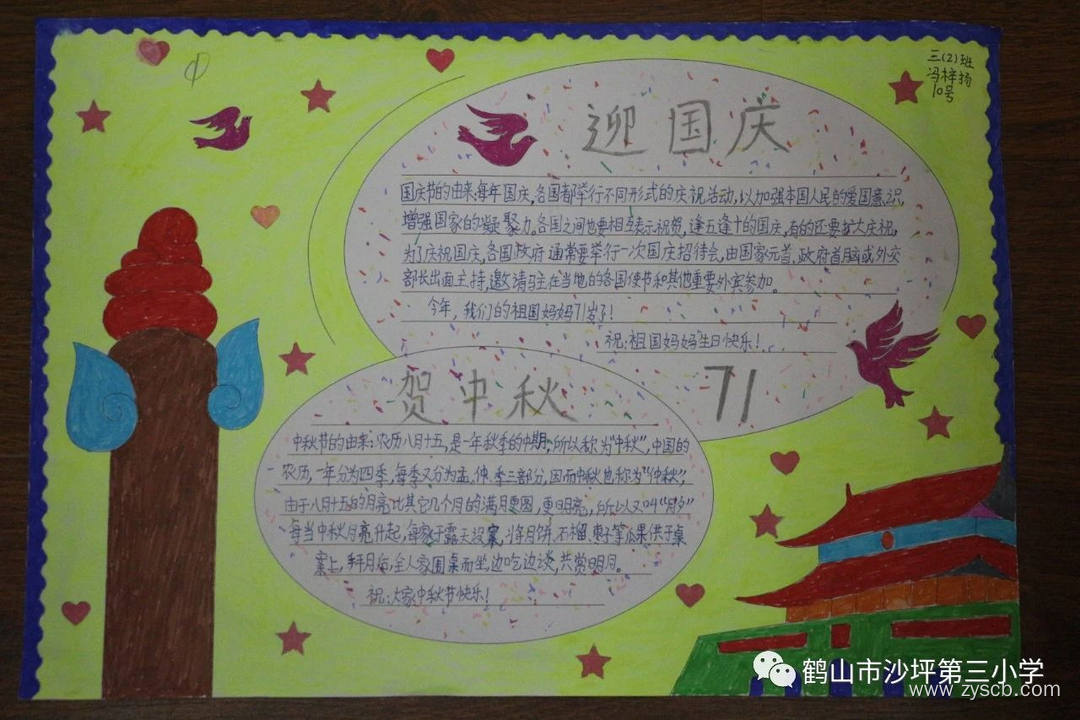 三(2)班
冯梓扬
10号
迎国庆
国庆节的由来:每年国庆,各国都举行不同形式的庆祝活动,以加强本国人民的爱国意识,
增强国家的凝聚力。各国之间也要相互表示祝贺,逢五逢十的国庆,有的还要扩大庆祝,
为了庆祝国庆,各国政府通常要举行一次国庆招待会,由国家元首、政府首脑或外交
部长出面主持,邀请驻在当地的各国使节和其他重要外宾参加。
今年,我们的祖国妈妈71岁了!
祝:祖国妈妈生日快乐!
71
贺中秋
中秋节的由来:农历八月十五,是一年秋季的中期,所以称为“中秋”,中国的
农历,一年分为四季,每季又分为孟、仲、季三部分,因而中秋也称为“仲秋”,
由于八月十五的月亮比其它几个月的满月更圆,更明亮,所以又叫“月夕”
每当中秋月亮升起,每家于露天设案,将月饼、石榴、枣子等瓜果供于桌
案上,拜月后,全人家围桌而坐,边吃边谈,共赏明月。
祝:大家中秋节快乐!
鹤山市沙坪第三小学
www.zyscb.com